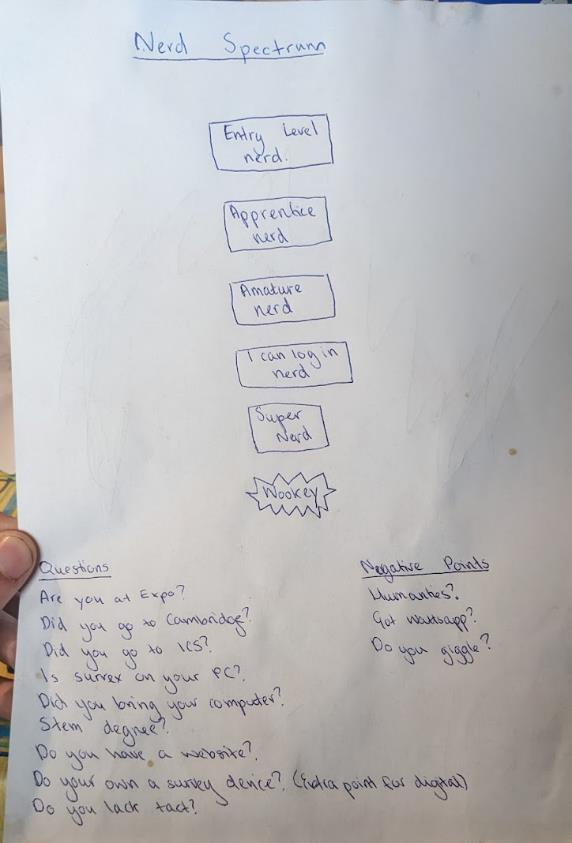 Nerd Spectrum
Entry Level
nerd.
Apprentice
nerd
Amature
nerd
I can log in
nerd
Super
Nerd
Wookey
Questions
Are you at Expo?
Did you go to Cambridge?
Did you go to ICS?
Is survex on your PC?
Did you bring your computer?
Stem degree?
Do you have a website?
Do your own a survey device? (Extra point for digital)
Do you lack tact?
Negative Points
Humanities?
Got Whatsapp?
Do you giggle?